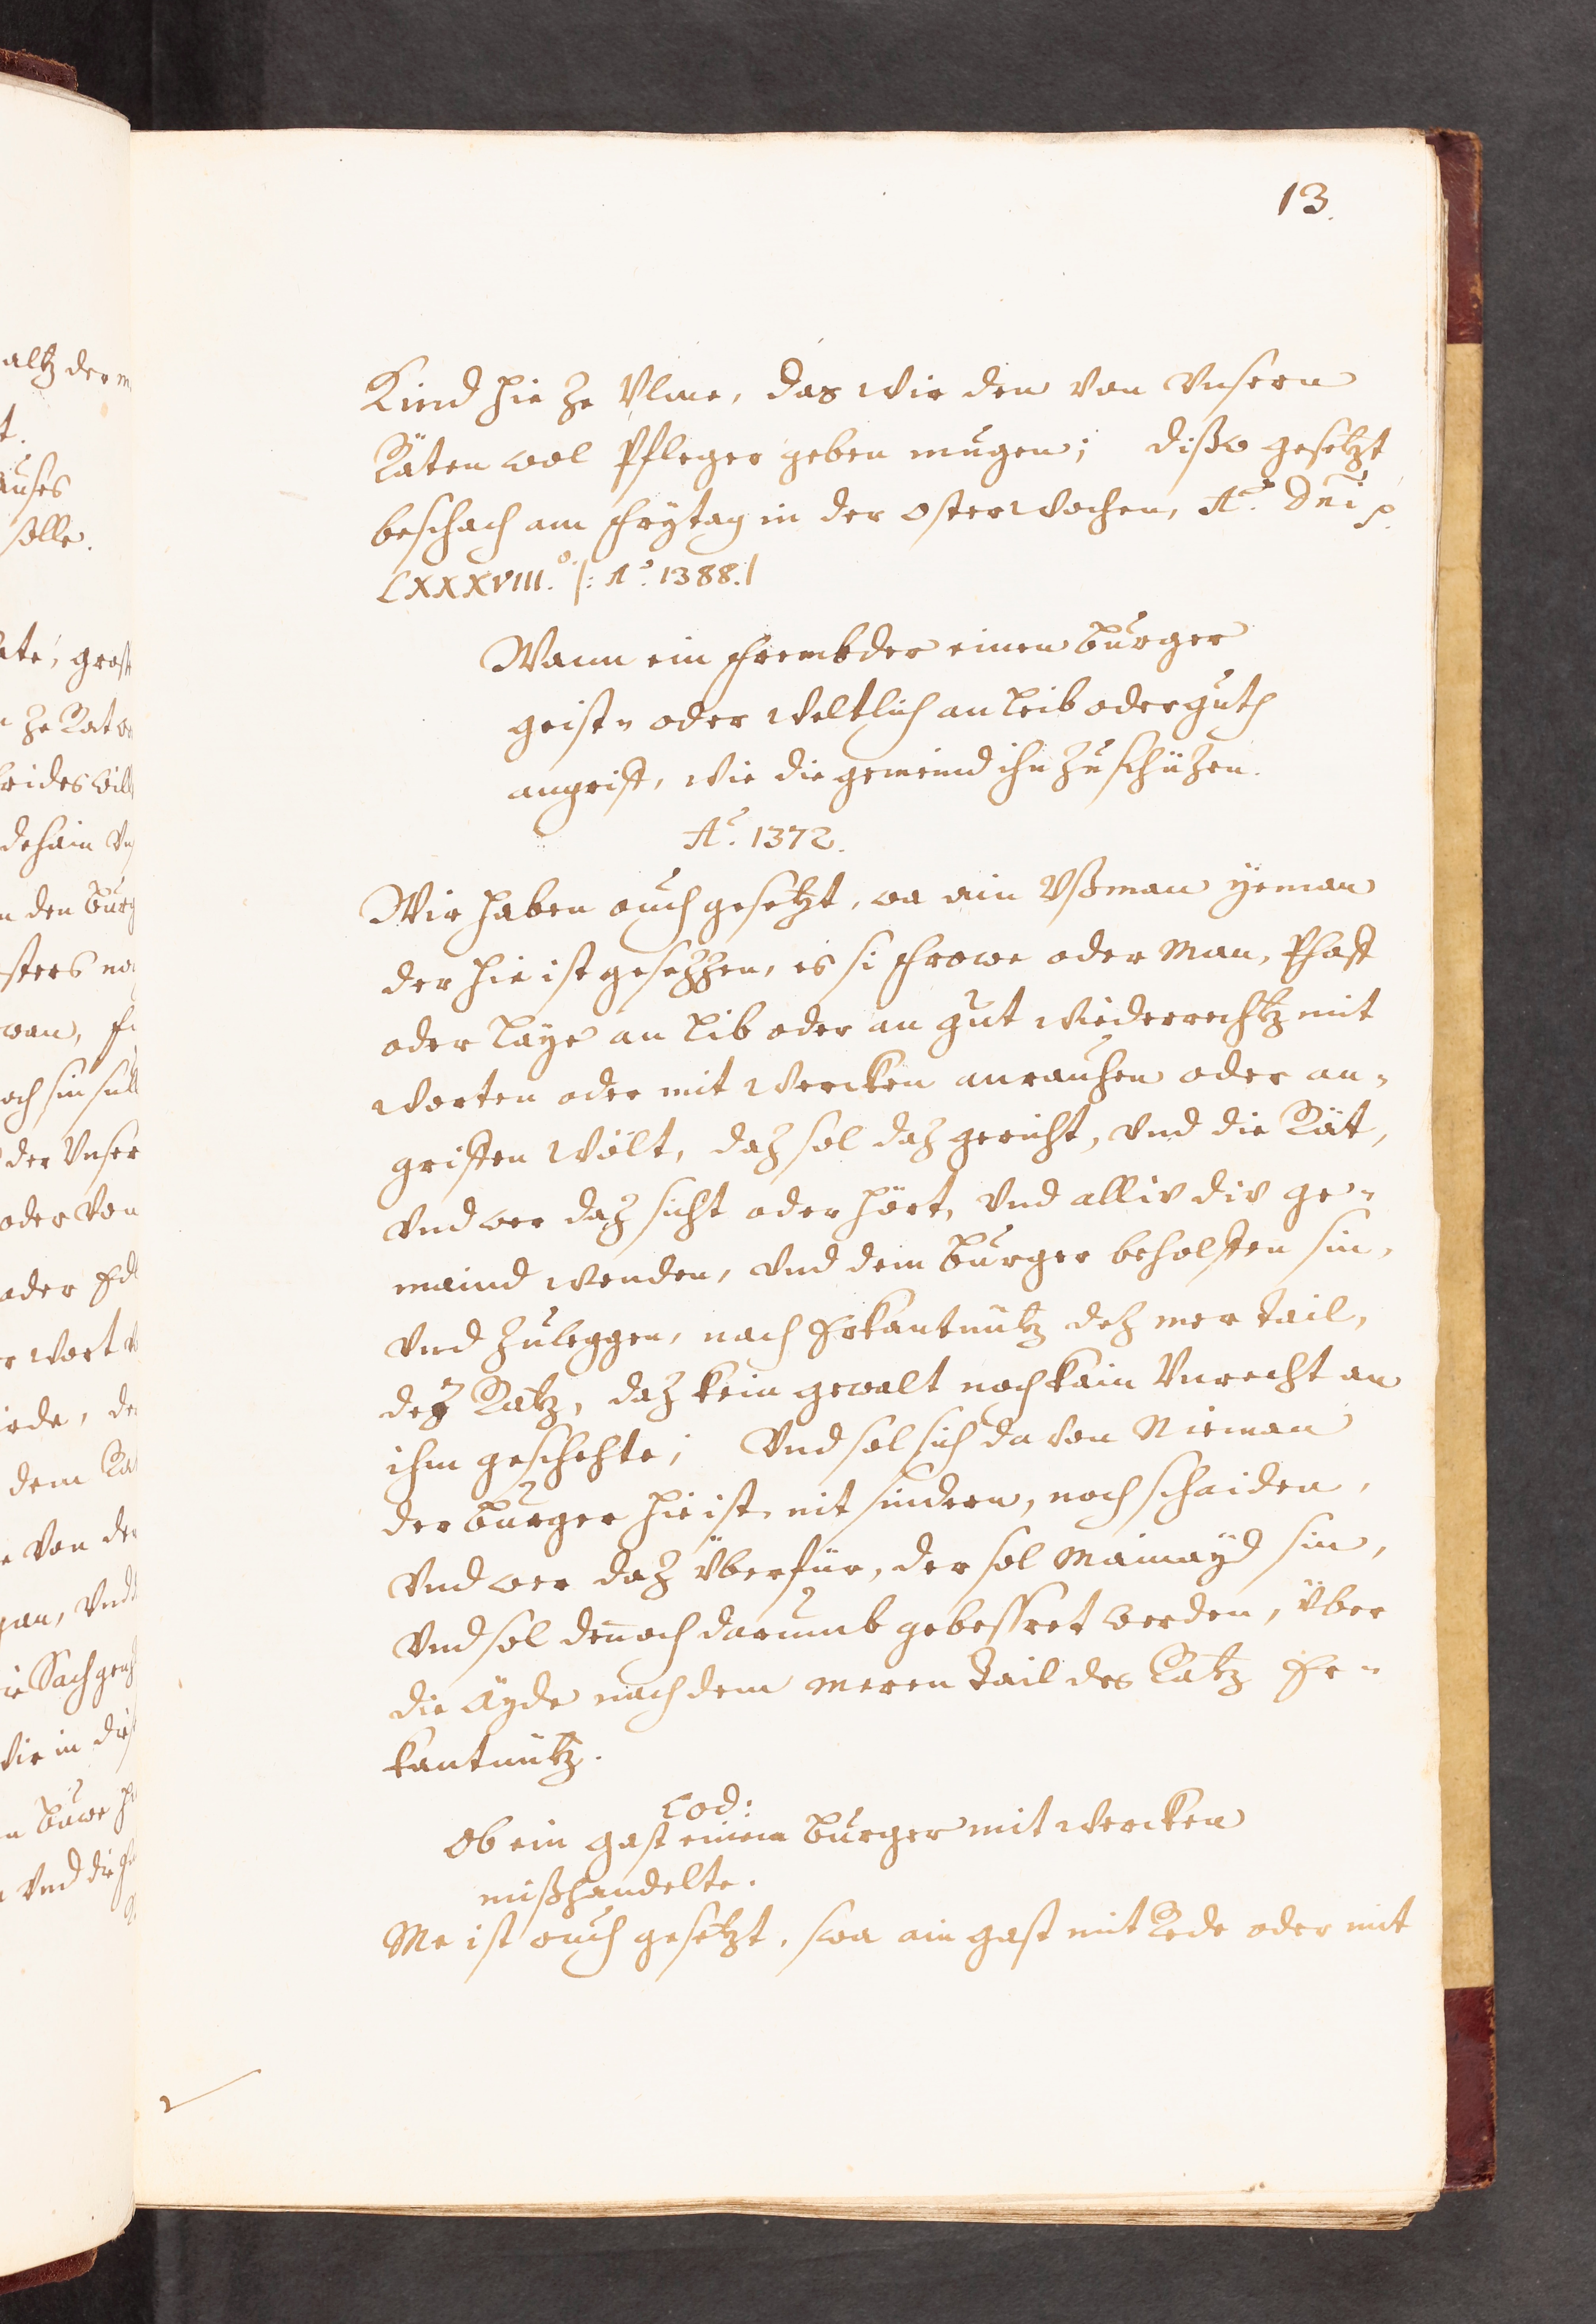 altz der
t.
auses
solle.
ate, gross
ze Rat
leides
dehain
den burg
sters
wan,
och sin
der Unser
oder von
oder
wort
dem
von der
gan, Und
Sach
wie in
buwe
Und die
13.
Kind hie ze Ulme, das wir den von Unsern
Räten wol Pfleger geben mugen; diss gesetzt
beschach am Frytag in der osterwochen, Aō. Dni p.
LXXXVIII.º /: Aº. 1388./
Wann ein Frembder einen burger
geist= oder Weltlich an leib oder guth
angrift, wie die gemeind ihn zu schüzen.
Aº. 1372.
Wir haben ouch gesetzt, wa ain Ussman yeman
der hie ist gesezzen, es si Frowe oder Man, Phaff
oder Laye an lib oder an gut Wiederrechtz mit
Worten oder mit Wercken anrauhen oder an=
griffen Wölt, daz sol daz gericht, Und die Rät,
Und wer daz sicht oder hört, Und alliv div ge=
maind wenden, Und dem burger beholffen sin,
Und zuleggen, nach Erkantnutz dez mer tail,
dez Ratz, daz kein gewalt noch kain Unrecht an
ihm geschehte; Und sol sich da von Nieman
der burger hie ist, nit sindern, noch schaiden,
Und wer daz überfür, der sol Mainayd sin,
Und sol dennoch darumb gebessret werden, über
die Ayde nach dem meren tail des Ratz Er=
kantnütz.
Cod:
Ob ein gast einem burger mit wercken
misshandelte.
Me ist ouch gesetzt, swa ain gast mit Rede oder mit